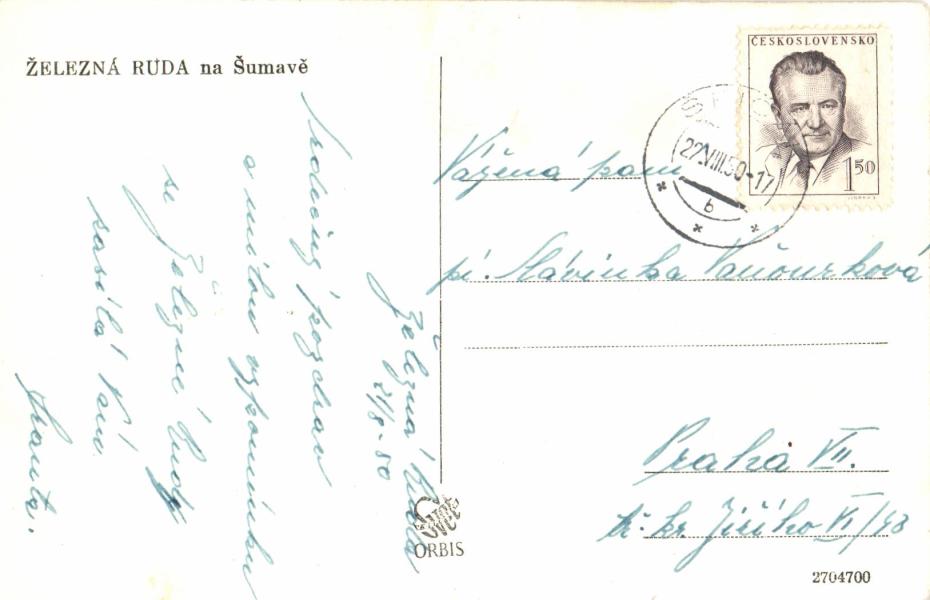 ŽELEZNÁ RUDA na Šumavě
Železná Ruda
21/8-50
Srdečný pozdrav
a milou vzpomínku
ze Železné Rudy
zasílá Vám
ČESKOSLOVENSKO
1 50
22.VIII.50-17
b
Vážená paní
pí. Slávinka Vaňourková
Praha VII.
tř. kr. Jiřího VI/48
ORBIS
2704700